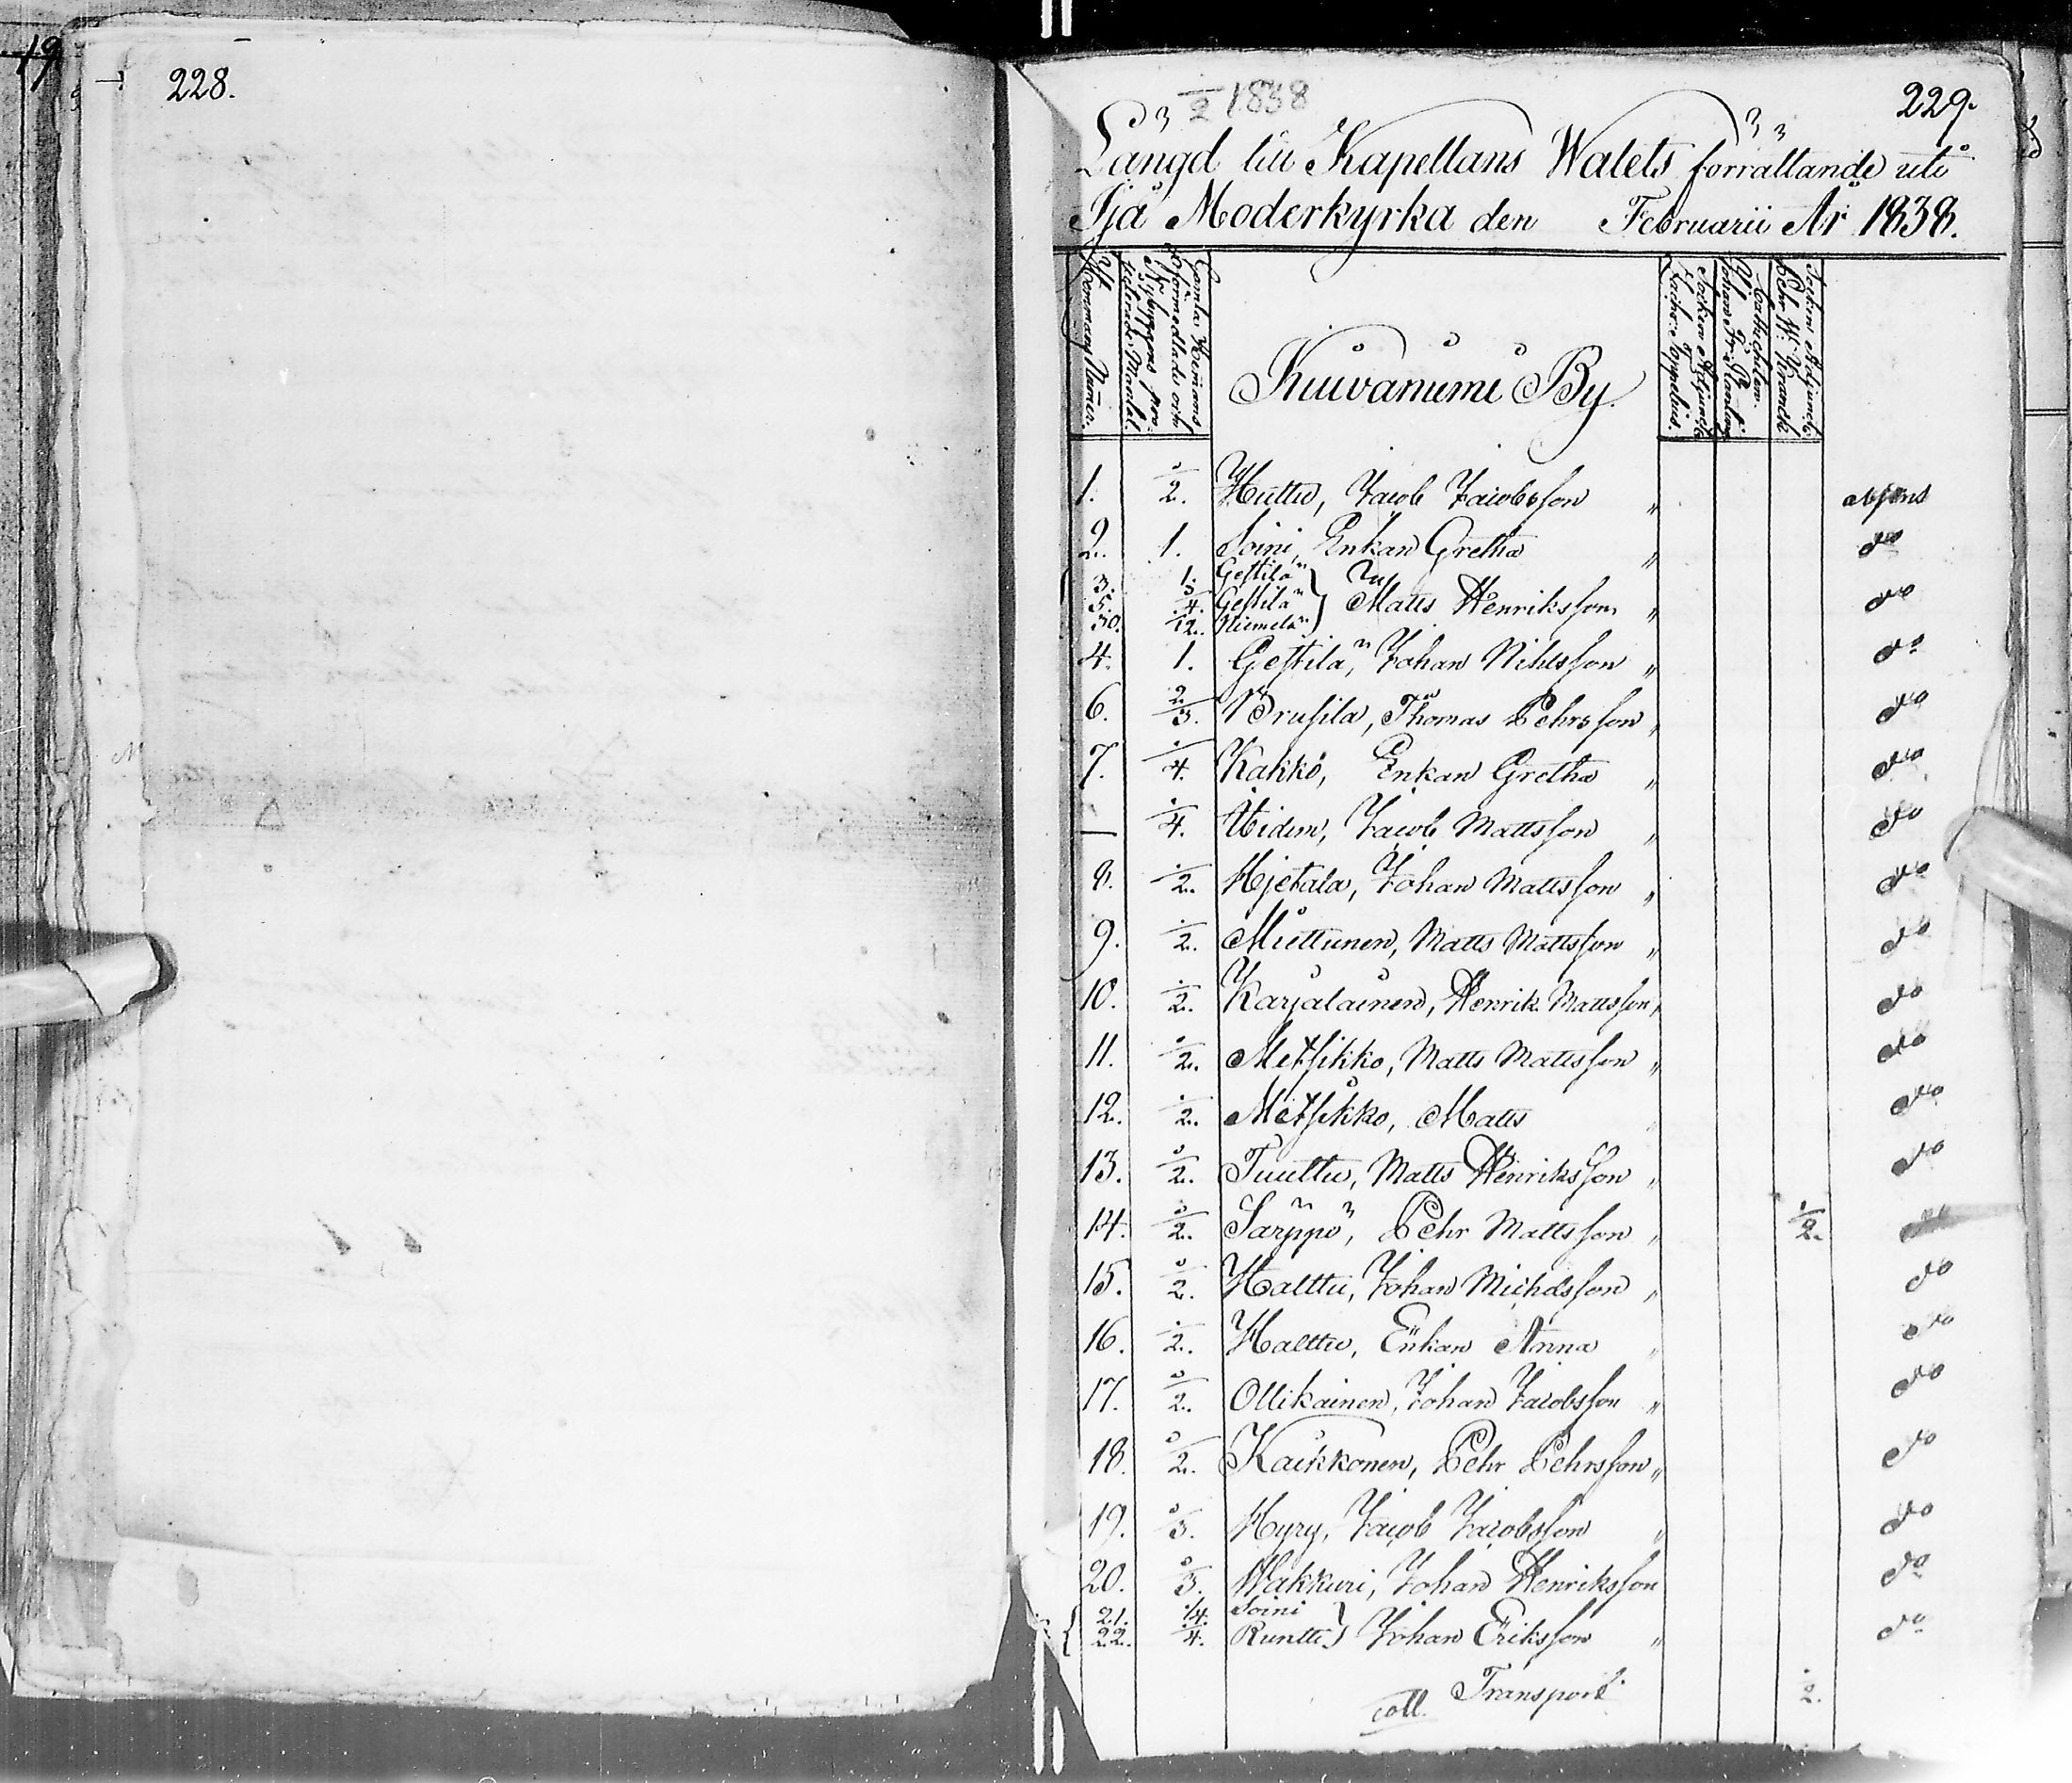 19
228.
229.
2 1838
Längd till Kapellans Walets förrättande uti
Ijå Moderkyrka den Februarii År 1838.
Kuivaniemi By.
1. 1/2. Huttu, Jacob Jacobsson " absens
2. 1. Soini, Enkan Gretha " do
3. 1/3 Gestilä
5. 1/4. Gestilä } Matts Henriksson " do
30. 1/12. Niemelä
4. 1. Gestilä, Johan Nihlsson " do
6. 2/3. Brusila, Thomas Pehrsson " do
7. 1/4. Kakko, Enkan Gretha " do
— 1/4. Widen, Jacob Mattsson " do
8. 1/2. Hjetala, Johan Mattsson " do
9. 1/2. Miettunen, Matts Mattsson " do
10. 1/2. Karjalainen, Henrik Mattsson " do
11. 1/2. Metsikko, Matts Mattsson " do
12. 1/2. Metsikko, Matts do
13. 1/2. Tuuttu, Matts Henriksson " do
14. 1/2. Särppö, Pehr Mattsson " 1/2.
15. 1/2. Halttu, Johan Michelsson " do
16. 1/2. Halttu, Enkan Anna " do
17. 1/2. Ollikainen, Johan Jacobsson " do
18. 1/2. Kaikkonen, Pehr Pehrsson " do
19. 1/3. Hyry, Jacob Jacobsson " do
20. 1/3. Wakkuri, Johan Henriksson do
21. 1/4. Soini
22. 1/4. Runtti } Johan Eriksson " do
coll. Transport 1/2.